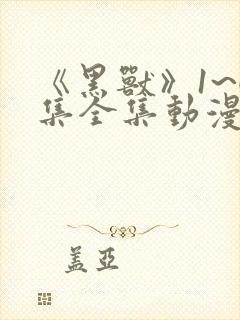 《黑獸》1~
集全集動漫
盖亞